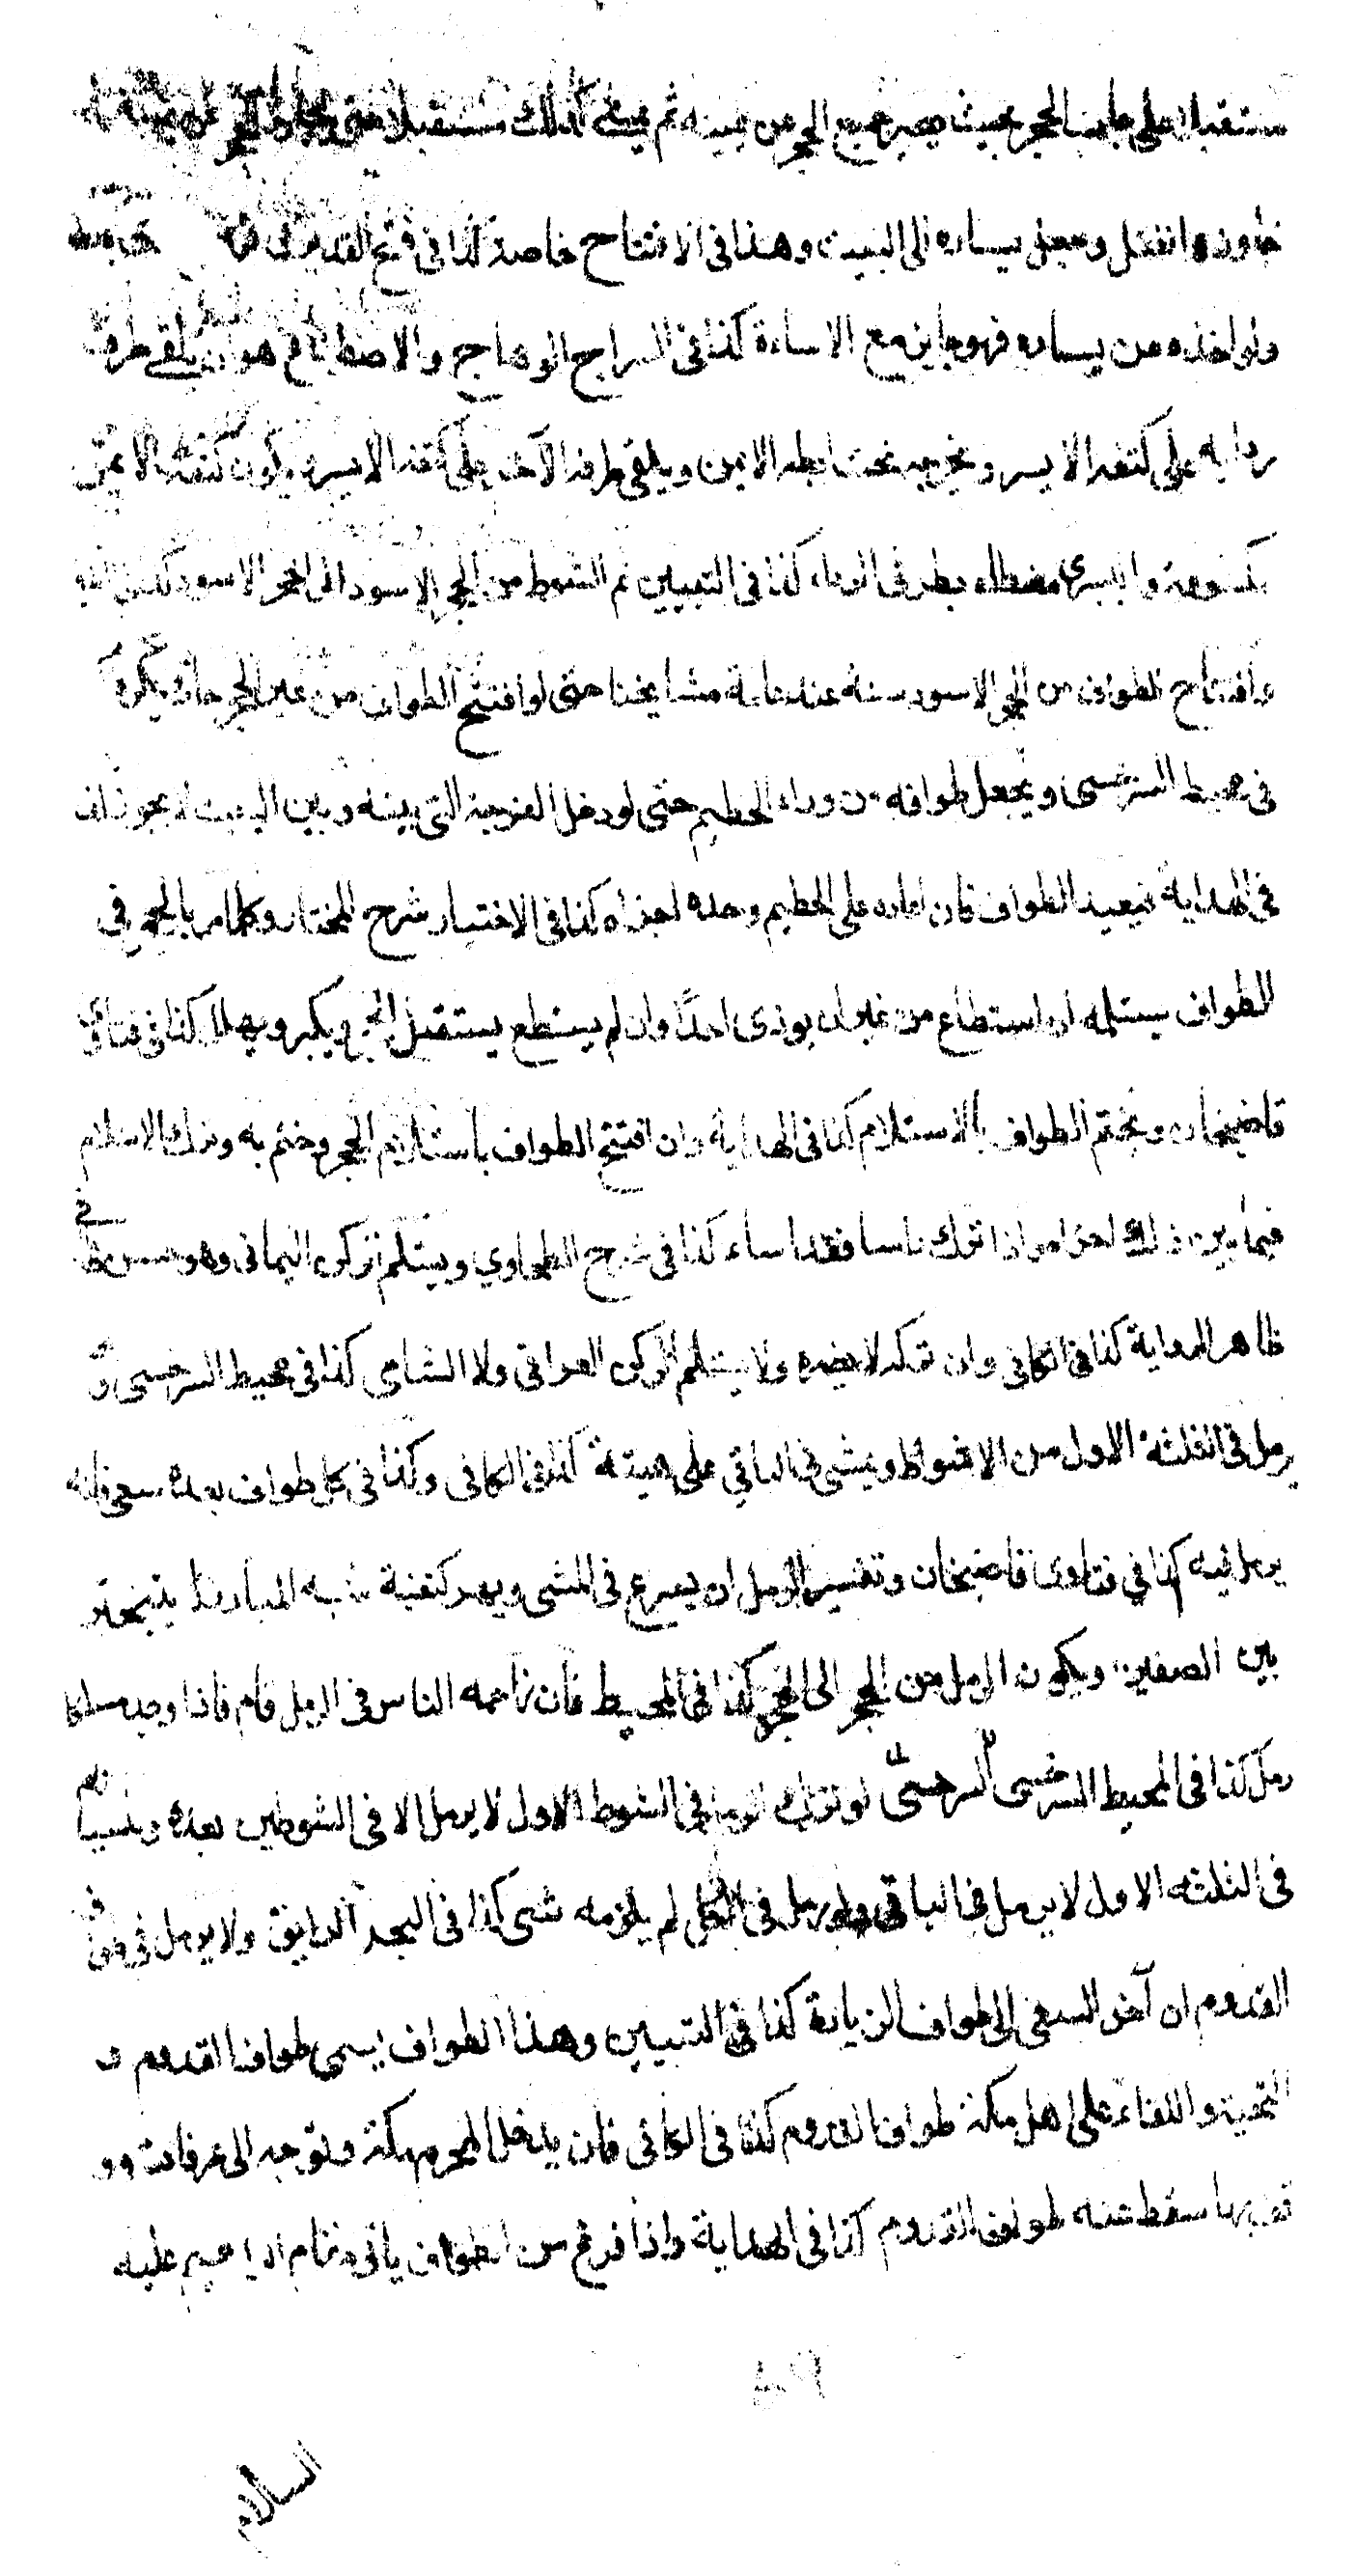 مستقبلا على جانب الحجر بحيث يصير جميع الحجر عن يمينه ثم يمشي كذلك مستقبلا حتى يجاوز الحجر
جاوزه انفتل وجعل يساره الى البيت وهذا فى الافتتاح خاصة كذا فى فتح القدير
ولو اخذه من يساره فهو جايز مع الاساءة كذا فى السراج الوهاج والاضطباع هو ان يلقى طرف
ردايه على كتفه الايسر ويخرجه تحت ابطه الايمن ويلقى طرفه الآخر على كتفه الايسر ويكون كتفه الايمن
مكشوفة واليسرى مغطاة بطرفى الرداء كذا فى التبيين ثم الشوط من الحجر الاسود الى الحجر الاسود كذا فى
وافتتاح الطواف من الحجر الاسود سنة عند عامة مشايخنا حتى لو افتتح الطواف من غير الحجر جاز ويكره
فى محيط السرخسى ويجعل طوافه من وراء الحطيم حتى لو دخل الفرجة التى بينه وبين البيت لا يجوز كذا
فى الهداية فيعيد الطواف فان اعاده على الحطيم وحده اجزاه كذا فى الاختيار شرح المختار وكلما مر بالحجر فى
الطواف يستلمه ان استطاع من غير ان يوذى احدًا وان لم يستطع يستقبل الحجر ويكبر ويهلل كذا فى فتاوى
قاضيخان ويختم الطواف بالاستلام كذا فى الهداية وان افتتح الطواف باستلام الحجر وختم به وترك الاستلام
فيما بين ذلك اجزاه واذا ترك راسا فقد اساء كذا فى شرح الطحاوي ويستلم الركن اليمانى وهو حسن فى
ظاهر الرواية كذا فى الكافى وان تركه لا يضره ولا يستلم الركن العراقى ولا الشامى كذا فى محيط السرخسى و
يرمل فى الثلثة الاول من الاشواط ويمشى فى الباقي على هينة كذا فى الكافى وكذا فى كل طواف بعده سعى فانه
يرمل فيه كذا في فتاوى قاضيخان وتفسير الرمل ان يسرع فى المشى ويهز كتفيه شبه المبارز يتبختر
بين الصفين ويكون الرمل من الحجر الى الحجر كذا فى المحيط فان زاحمه الناس فى الرمل قام فاذا وجد مسلكا
رمل كذا فى المحيط السرخسى السرخسى لو ترك الرمل فى الشوط الاول لا يرمل الا فى الشوطين بعده
فى الثلثه الاول لا يرمل فى الباقى ولو رمل فى الكل لم يلزمه شى كذا فى البحر الرايق ولا يرمل فى طواف
القدوم ان آخر السعى الى طواف الزيارة كذا فى التبيين وهذا الطواف يسمى طواف القدوم و
التحية واللقاء على اهل مكة طواف القدوم كذا فى الكافى فان يدخل المحرم مكة وتوجه الى عرفات وو
قف بها سقط عنه طواف القدوم كذا فى الهداية واذا فرغ من الطواف ياتى مقام ابراهيم عليه
السلام